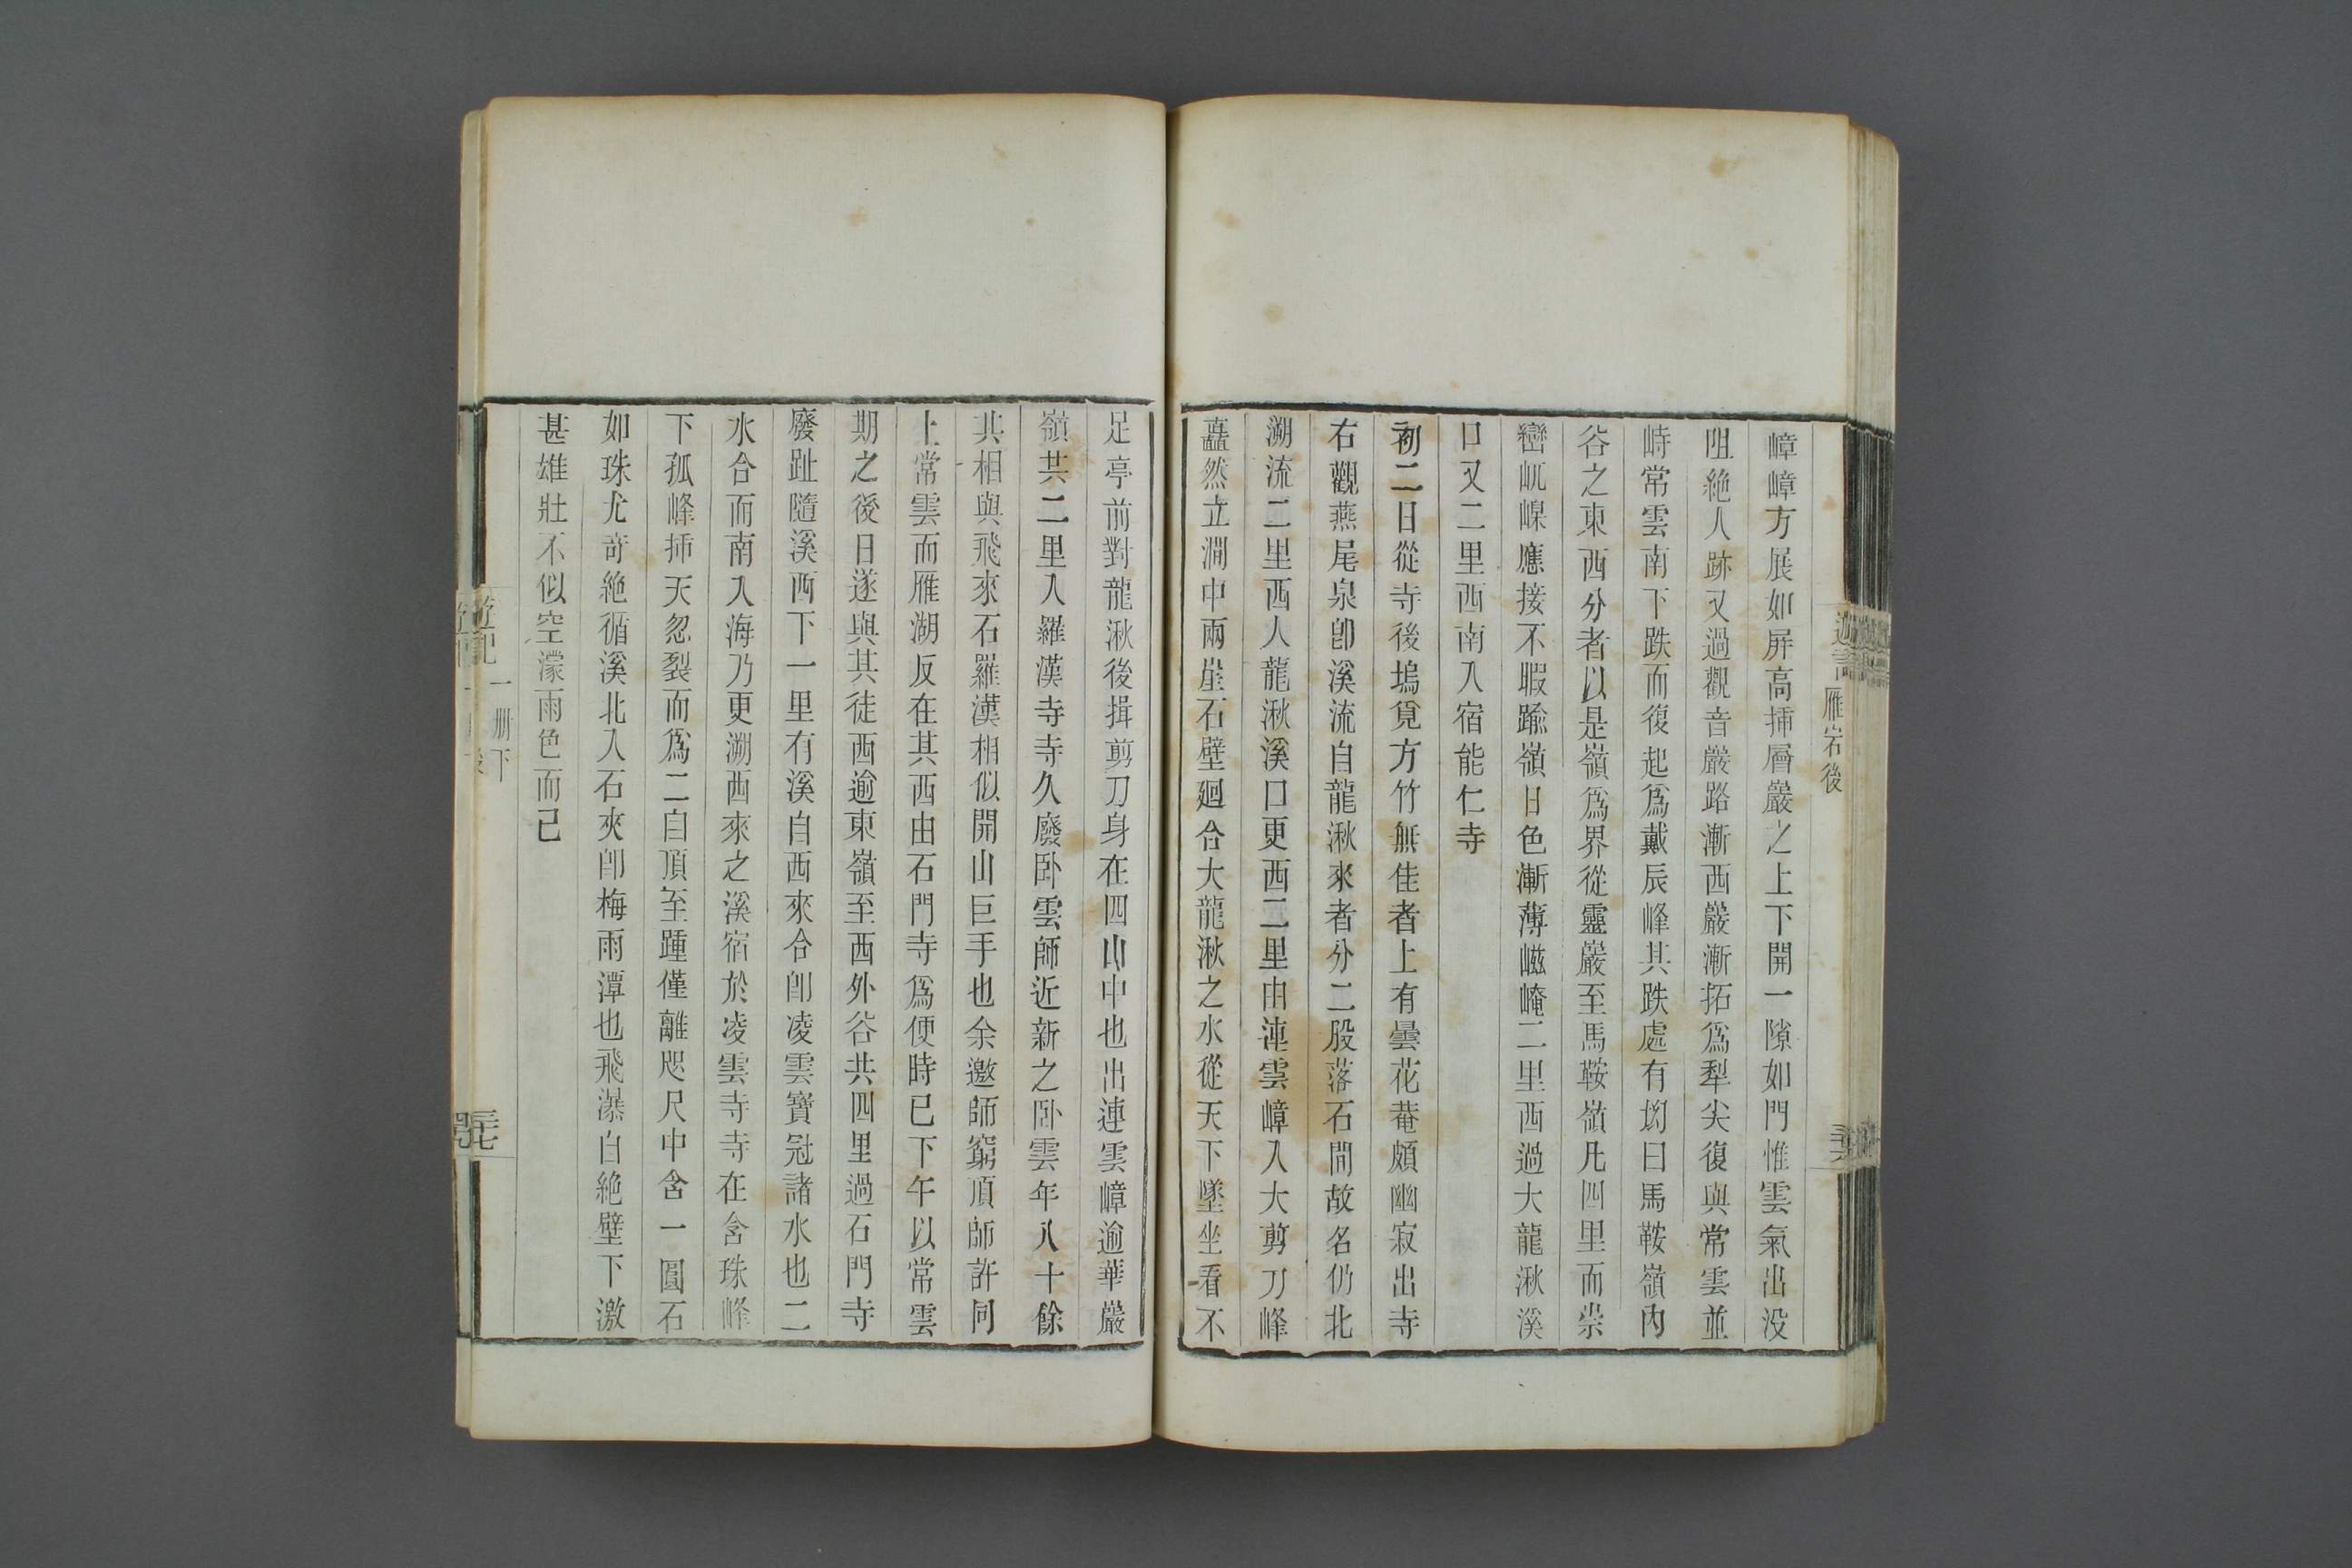 嶂嶂方展如屏高揷層巖之上下開一隙如門惟雲氣出没
阻絶人跡又過觀音巖路漸西巖漸拓爲犁尖復與常雲並
峙常雲南下跌而復起爲戴辰峰其跌處有坳曰馬鞍嶺內
谷之東西分者以是嶺爲界從靈巖至馬鞍嶺凡四里而崇
巒屼嵲應接不暇踰嶺日色漸薄崦嵫二里西過大龍湫溪
口又二里西南入宿能仁寺
初二日從寺後塢覓方竹無佳者上有曇花菴頗幽寂出寺
右觀燕尾泉卽溪流自龍湫來者分二股落石間故名仍北
溯流二里西入龍湫溪口更西二里由連雲嶂入大剪刀峰
矗然立澗中兩崖石壁廻合大龍湫之水從天下墜坐看不
足亭前對龍湫後揖剪刀身在四山中也出連雲嶂逾華巖
嶺共二里入羅漢寺寺久廢卧雲師近新之卧雲年八十餘
其相與飛來石羅漢相似開山巨手也余邀師窮頂師許同
上常雲而雁湖反在其西由石門寺爲便時已下午以常雲
期之後日遂與其徒西逾東嶺至西外谷共四里過石門寺
廢趾隨溪西下一里有溪自西來合卽凌雲寶冠諸水也二
水合而南入海乃更溯西來之溪宿於凌雲寺寺在含珠峰
下孤峰揷天忽裂而爲二自頂至踵僅離咫尺中含一圓石
如珠尤奇絶循溪北入石夾卽梅雨潭也飛瀑自絶壁下激
甚雄壯不似空濛雨色而已
雁宕後
遊記
一册下